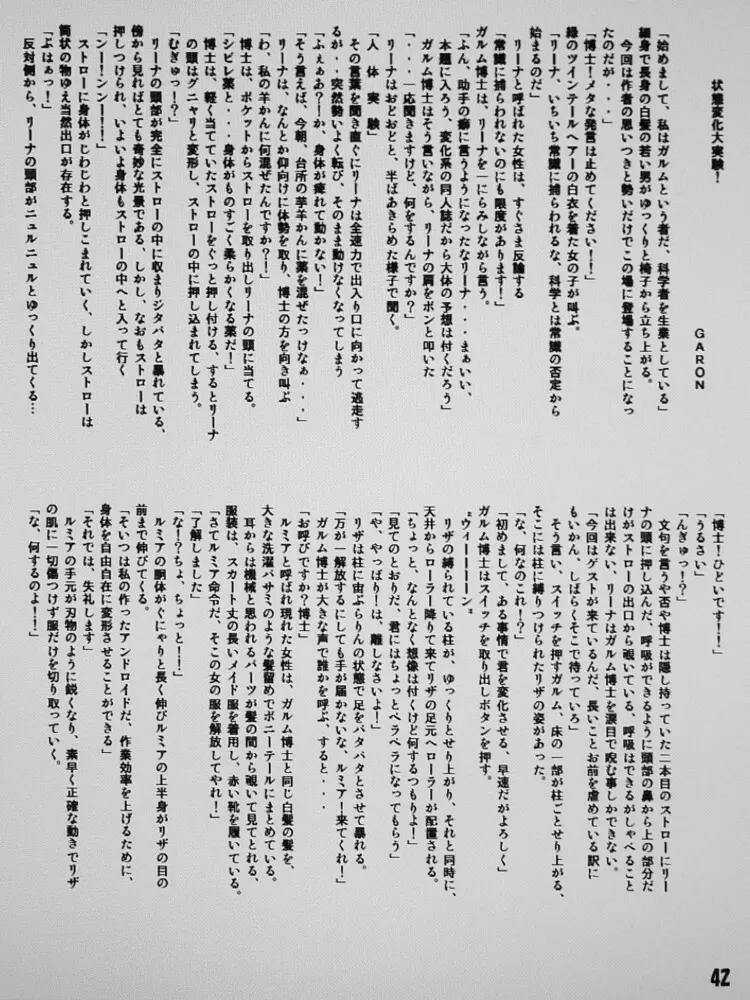 状態変化大実験！
GARON
「始めまして、私はガルムという者だ、科学者を生業としている」
細身で長身の白髪の若い男がゆっくりと椅子から立ち上がる。
今回は作者の思いつきと勢いだけでこの場に登場することになっ
たのだが・・・・」
「博士！メタな発言は止めてください！！」
緑のツインテールヘアーの白衣を着た女の子が叫ぶ。
「リーナ、いちいち常識に捕らわれるな、科学とは常識の否定から
始まるのだ」
リーナと呼ばれた女性は、すぐさま反論する
「常識に捕らわれないのにも限度があります！」
ガルム博士は、リーナを一にらみしながら言う。
「ふん、助手の癖に言うようになったなリーナ・・・まぁいい、
本題に入ろう、変化系の同人誌だから大体の予想は付くだろう」
ガルム博士はそう言いながら、リーナの肩をポンと叩いた
「・・・・一応聞きますけど、何をするんですか？」
リーナはおどおどと、半ばあきらめた様子で聞く。
「人 体 実 験」
その言葉を聞き直ぐにリーナは全速力で出入り口に向かって逃走す
るが・・突然勢いよく転び、そのまま動けなくなってしまう
「ふぇぁあ？！か、身体が痺れて動かない！」
「そう言えば、今朝、台所の芋羊かんに薬を混ぜたっけなぁ・・・」
リーナは、なんとか仰向けに体勢を取り、博士の方を向き叫ぶ
「わ、私の羊かんに何混ぜたんですか？！」
博士は、ポケットからストローを取り出しリーナの頭に当てる。
「シビレ薬と・・・身体がものすごく柔らかくなる薬だ！」
博士は、軽く当てていたストローをぐっと押し付ける、するとリーナ
の頭はグニャリと変形し、ストローの中に押し込まれてしまう。
「むぎゅっ！？」
リーナの頭部が完全にストローの中に収まりジタバタと暴れている、
傍から見ればとても奇妙な光景である、しかし、なおもストローは
押しつけられ、いよいよ身体もストローの中へと入って行く
「ンー！ンンー！！」
ストローに身体がじわじわと押しこまれていく、しかしストローは
筒状の物ゆえ当然出口が存在する。
「ぷはぁっ！」
反対側から、リーナの頭部がニュルニュルとゆっくり出てくる…
「博士！ひどいです！！」
「うるさい」
「んぎゅっ！？」
文句を言うや否や博士は隠し持っていた二本目のストローにリー
ナの頭に押し込んだ、呼吸ができるように頭部の鼻から上の部分だ
けがストローの出口から覗いている、呼吸はできるがしゃべること
は出来ない、リーナはガルム博士を涙目で睨む事しかできない。
「今回はゲストが来ているんだ、長いことお前を虐めている訳に
もいかん、しばらくそこで待っていろ」
そう言い、スイッチを押すガルム、床の一部が柱ごとせり上がる、
そこには柱に縛りつけられたリザの姿があった。
「な、何なのこれ！？」
「初めまして、ある事情で君を変化させる、早速だがよろしく」
ガルム博士はスイッチを取り出しボタンを押す。
〝ウィーーーーン〟
リザの縛られている柱が、ゆっくりとせり上がり、それと同時に、
天井からローラー降りて来てリザの足元へローラーが配置される。
「ちょっと、なんとなく想像は付くけど何するつもりよ！」
「見てのとおりだ、君にはちょっとペラペラになってもらう」
「や、やっぱり！は、離しなさいよ！」
リザは柱に宙ぶらりんの状態で足をバタバタとさせて暴れる。
「万が一解放するにしても手が届かないな、ルミア！来てくれ！」
ガルム博士が大きな声で誰かを呼ぶ、すると・・・
「お呼びですか？博士」
ルミアと呼ばれ現れた女性は、ガルム博士と同じ白髪の髪を、
大きな洗濯バサミのような髪留めでポニーテールにまとめている。
耳からは機械と思われるパーツが髪の間から覗いて見てとれる、
服装は、スカート丈の長いメイド服を着用し、赤い靴を履いている。
「さてルミア命令だ、そこの女の服を解放してやれ！」
「了解しました」
「な！？ちょ、ちょっと！！」
ルミアの胴体がぐにゃりと長く伸びルミアの上半身がリザの目の
前まで伸びてくる。
「そいつは私の作ったアンドロイドだ、作業効率を上げるために、
身体を自由自在に変形させることができる」
「それでは、失礼します」
ルミアの手元が刃物のように鋭くなり、素早く正確な動きでリザ
の肌に一切傷つけず服だけを切り取っていく。
「な、何するのよ！！」
42